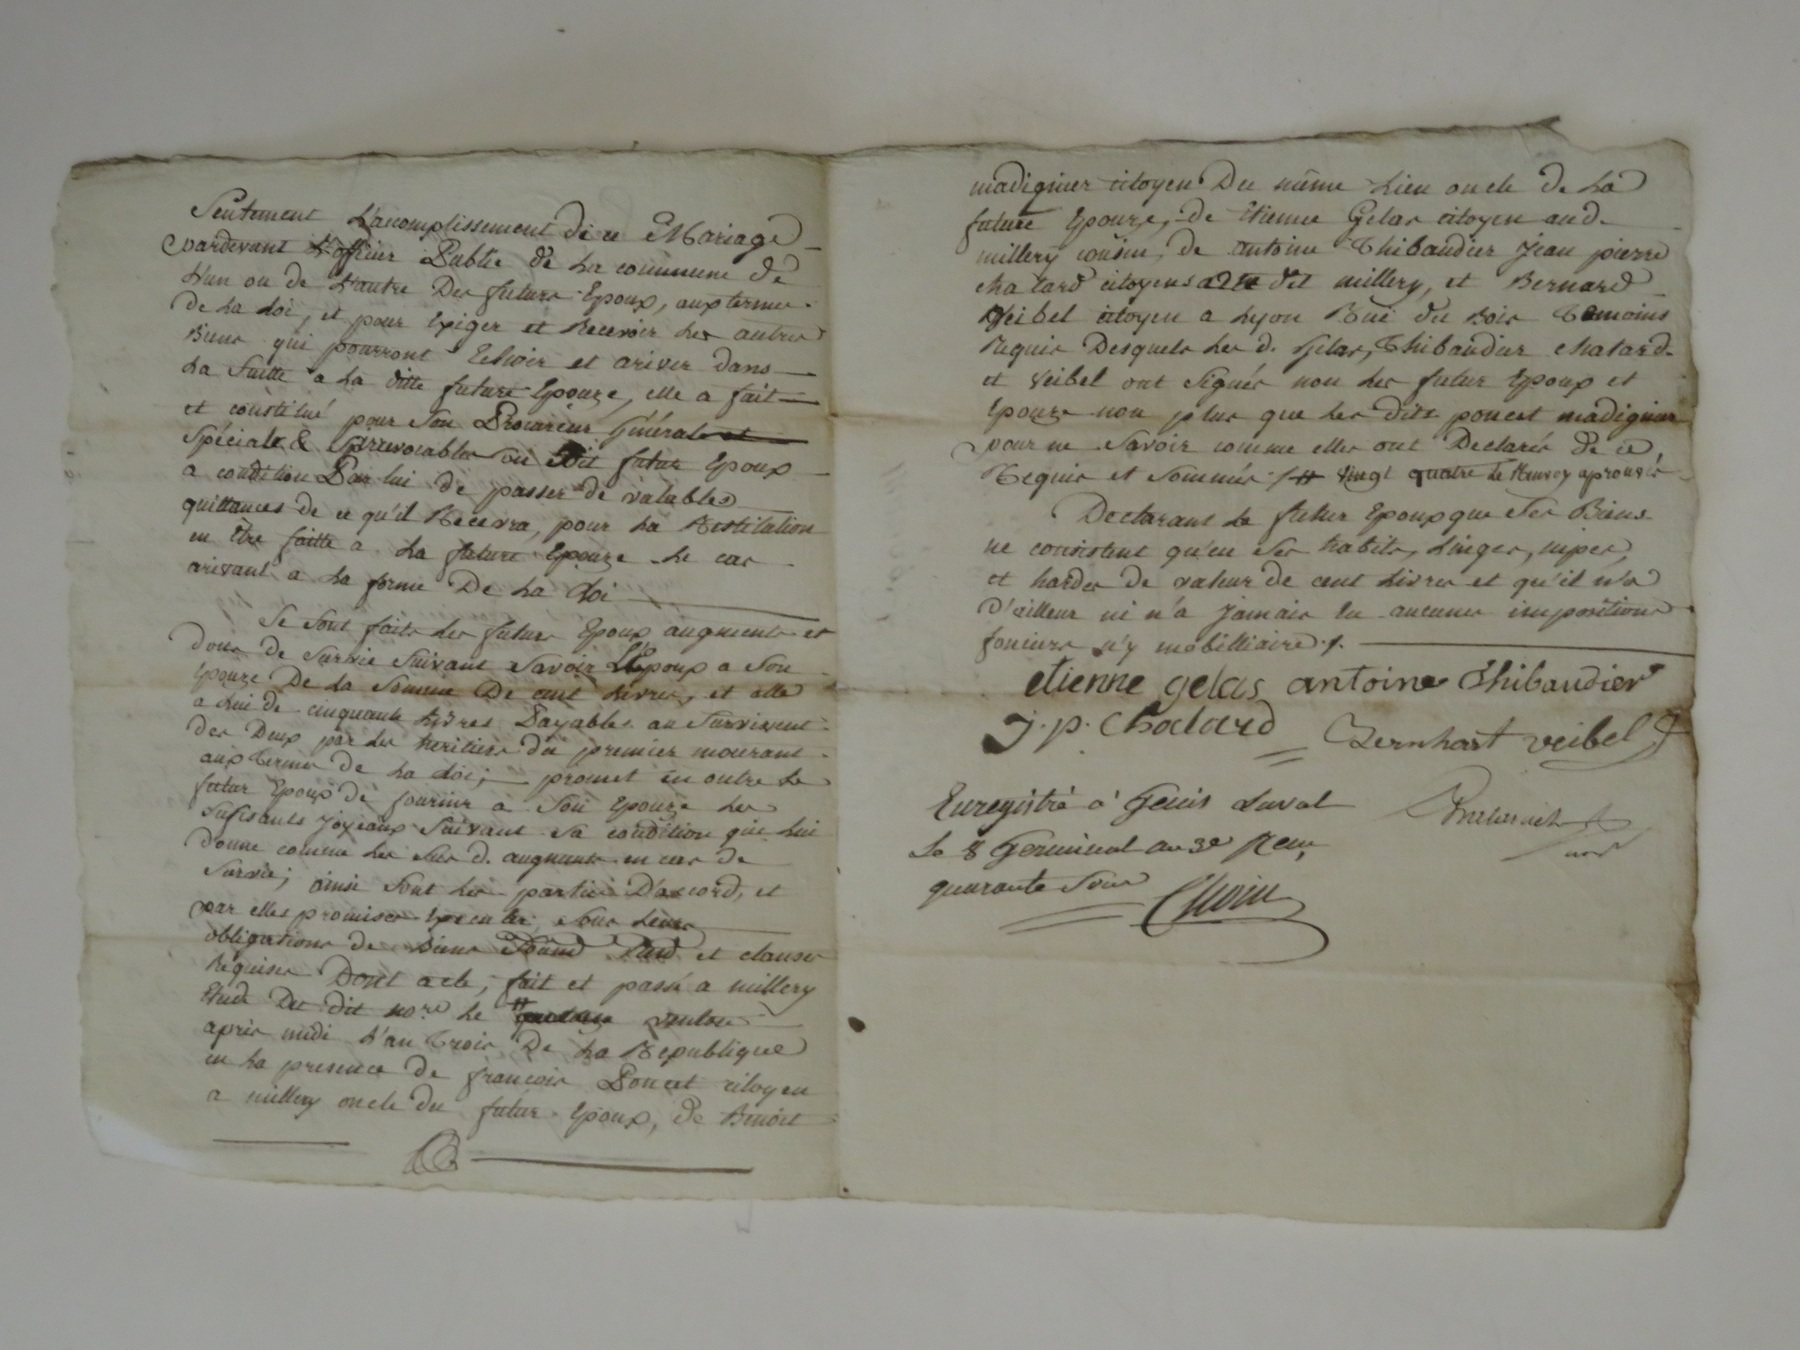 Seulement L'acomplissement de ce Mariage
pardevant L'officier Public de La commune de
L'un ou de L'autre Des futurs Epoux, aux termes
de La Loi, et pour Exiger et Recevoir Les autres
Biens qui pourront Echoir et ariver dans
La Suitte a La ditte future Epouze, elle a fait
et constitué pour Son Procureur Général et
Spéciale & Irrevocable Dit futur Epoux
a condition Par lui de passer de valables
quittances de ce qu'il Recevra, pour La Restitution
en Etre faitte a La future Epouze Le cas
arivant a La forme De La Loi
Se Sont faits Les futurs Epoux augments et
dons de Survie Suivant Savoir L'Epoux a Son
Epouze De La Somme De cent Livres, et elle
a Lui de cinquante Livres Payables au Survivent
des Deux par Les heritiers du premier mourant
aux Termes de La Loi; promet en outre Le
futur Epoux de fournir a Son Epouze Les
Sufisants Joyeaux Suivant Sa condition qu'il Lui
Donne comme Les Sus d. augments en cas de
Survie; ainsi Sont Les parties D'acord, et
par elles promises Executer Sous Leurs
obligations de Biens et clauses
Requises Dont acte, fait et passé a millery
Etude Du dit no.re Le # ventose
après midi L'an Trois De La Republique
en La presence de françois Poncet citoyen
a millery oncle du futur Epoux, de Benoit
madignier citoyen Du même Lieu oncle de La
future Epouze, de Etienne Gelas citoyen aud.
millery cousin, de antoine Thibaudier Jean pierre
chatard citoyens dit millery, et Bernard
Veibel citoyen a Lyon Rue du Bois Temoins
Requis Desquels Les d. Gelas, Thibaudier chatard
et Veibel ont Signés non Les futur Epoux et
Epouze non plus que Les dits poncet madignier
pour ne Savoir comme elles ont Declarés de ce
Requis et Sommés /# vingt quatre Le Renvoy aprouvés
Declarant Le futur Epoux que Ses Biens
ne consistent qu'en Ses habits, Linges, nipes,
et hardes de valeur de cent Livres et qu'il n'a
D'ailleur ni n'a Jamais Eu aucunes impositions
foncières n'y mobilliaire ./.
etienne gelas antoine Thibaudier
J. p. Chatard Bernhart veibel
Enregistré a Genis Laval
Le 8 Germinal an 3e Reçu
quarante Sous